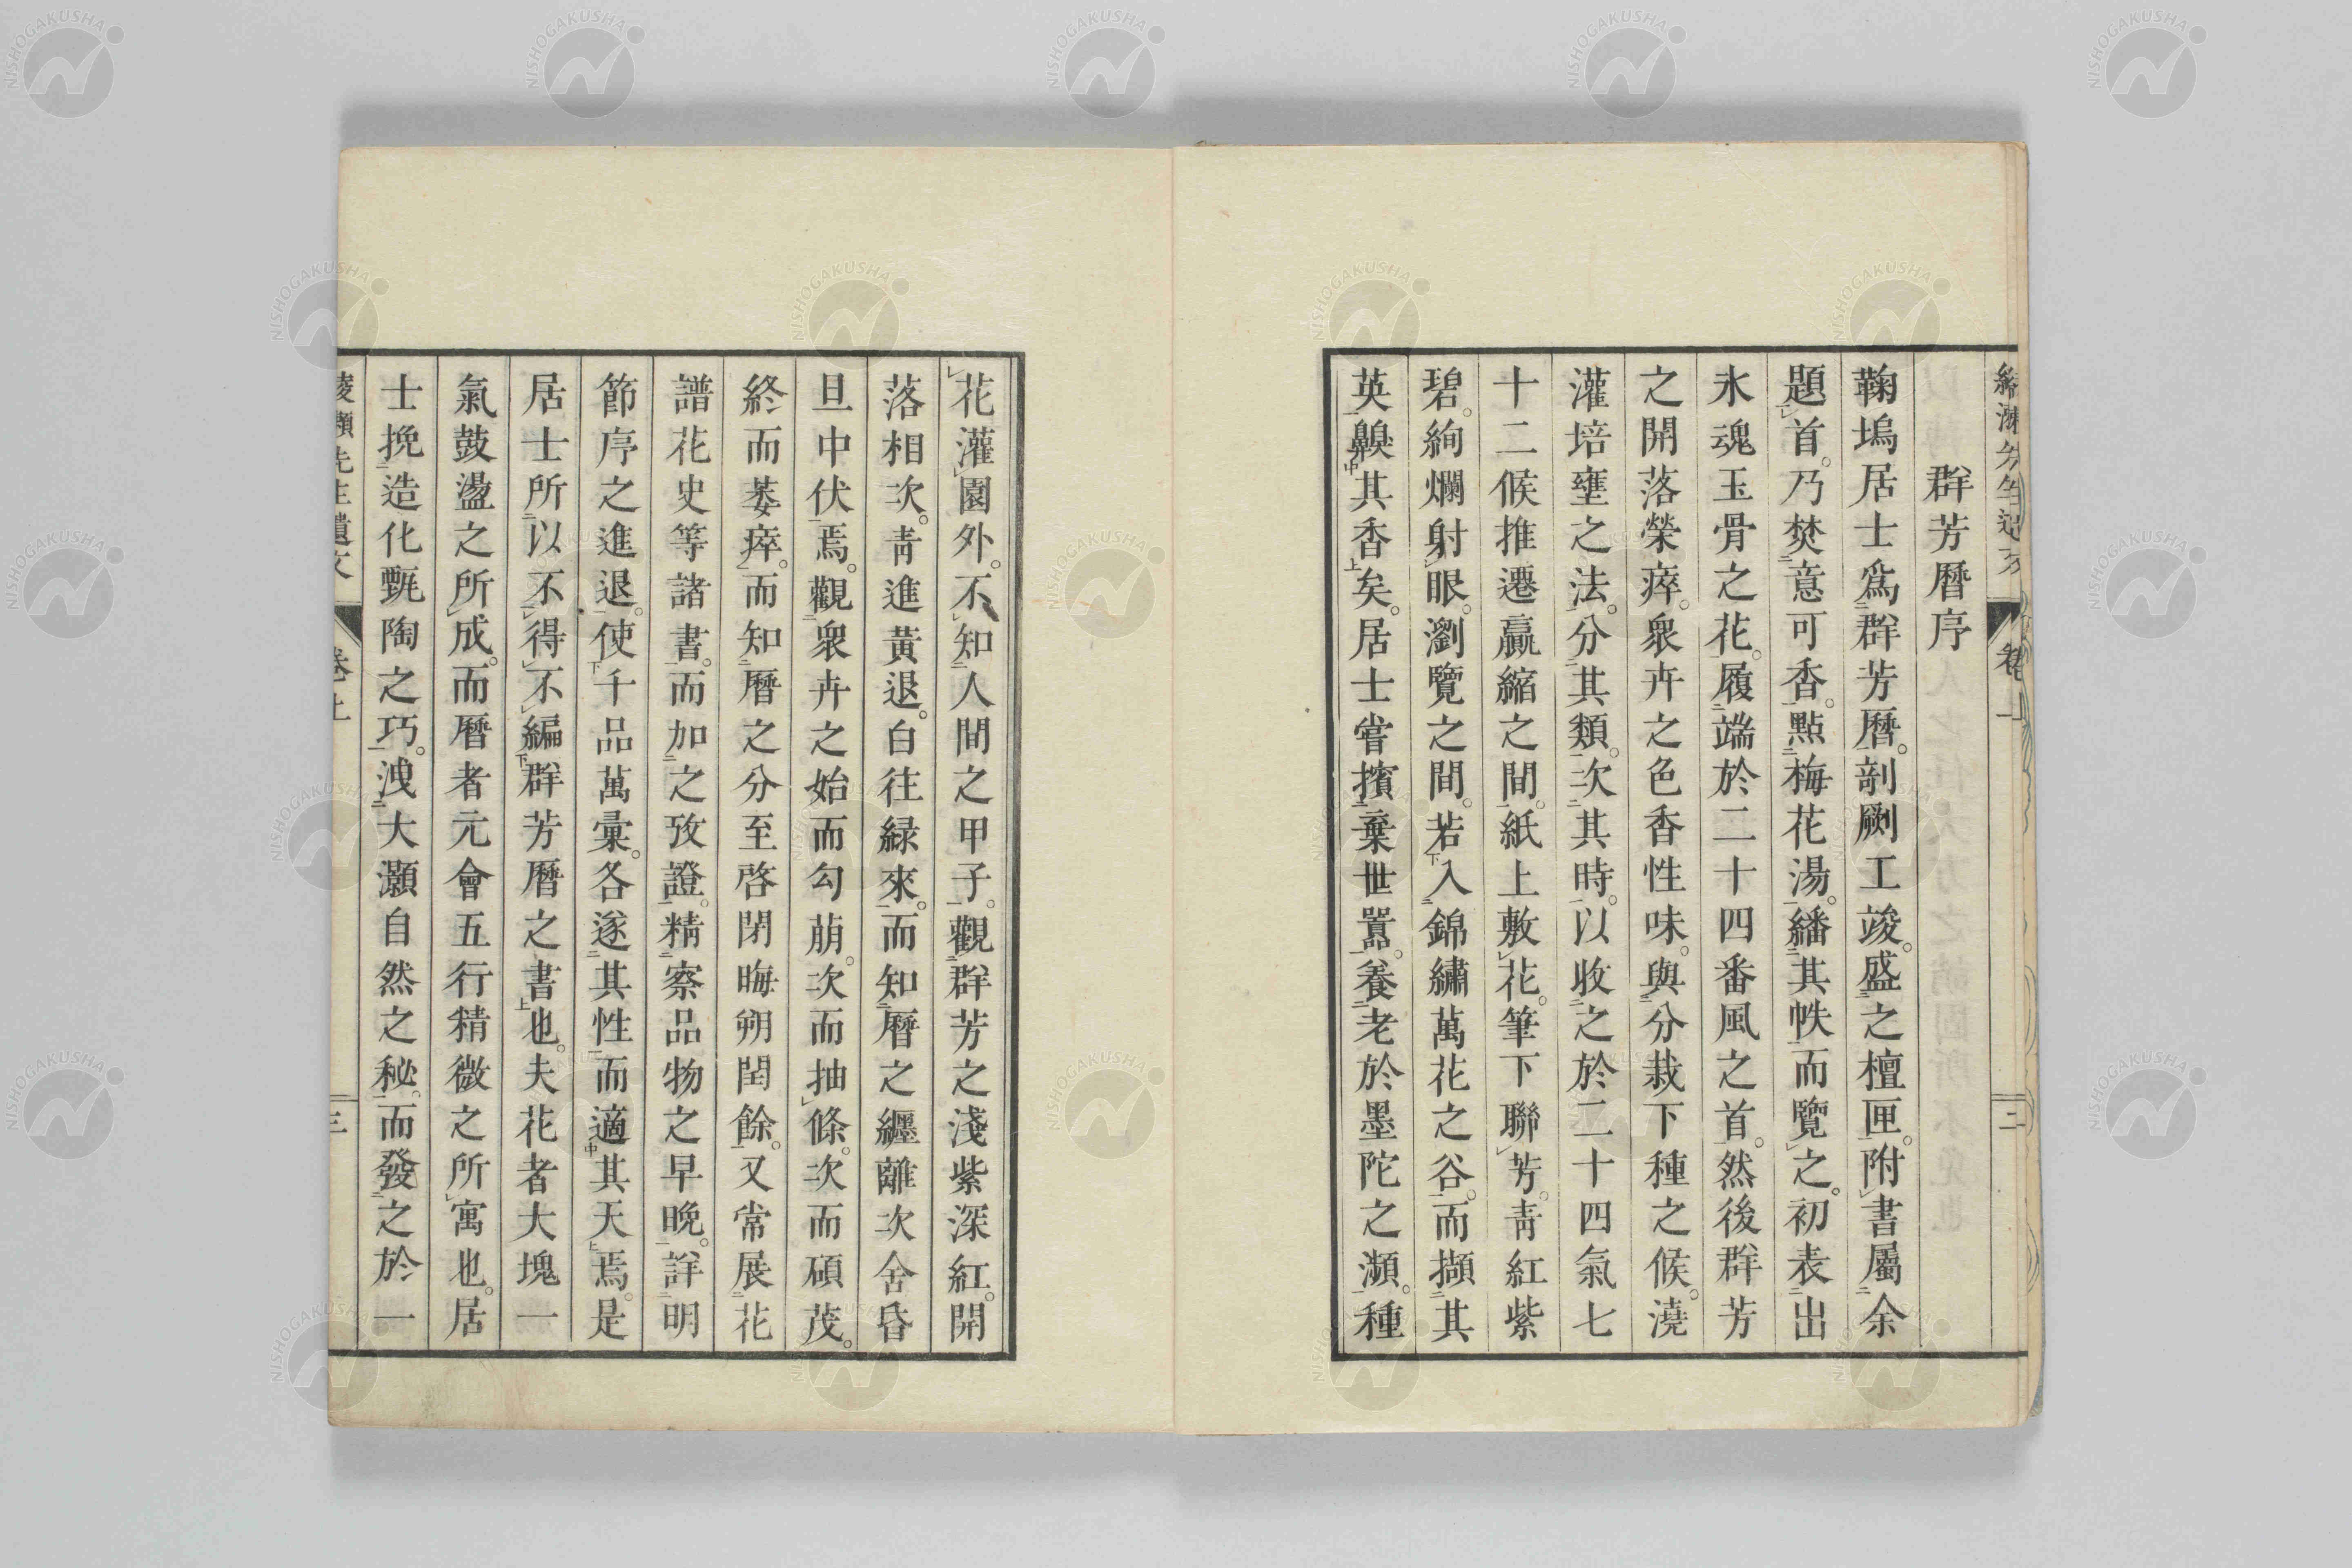 群芳曆序
鞠塢居士爲群芳曆。剞劂工竣。盛之檀匣。附書屬余
題首。乃焚意可香。點梅花湯。繙其帙而覽之。初表出
氷魂玉骨之花。履端於二十四番風之首。然後群芳
之開落榮瘁。衆卉之色香性味。與分栽下種之候。澆
灌培壅之法。分其類。次其時。以收之於二十四氣七
十二候推遷贏縮之間。紙上敷花。筆下聯芳。靑紅紫
碧。絢爛射眼。瀏覽之間。若入錦繡萬花之谷。而擷其
英齅其香矣。居士嘗擯棄世囂。養老於墨陀之瀕。種
花灌園外。不知人間之甲子。觀群芳之淺紫深紅。開
落相次。靑進黃退。白往綠來。而知曆之纒離次舍昏
旦中伏焉。觀衆卉之始而勾萠。次而抽條。次而碩茂。
終而萎瘁。而知曆之分至啓閉晦朔閏餘。又常展花
譜花史等諸書。而加之攷證。精察品物之早晚。詳明
節序之進退。使千品萬彙。各遂其性而適其天焉。是
居士所以不得不編群芳曆之書也。夫花者大塊一
氣鼓盪之所成。而曆者元會五行精微之所寓也。居
士挽造化甄陶之巧。洩大灝自然之秘。而發之於一
綾瀨先生遺文 卷上 三